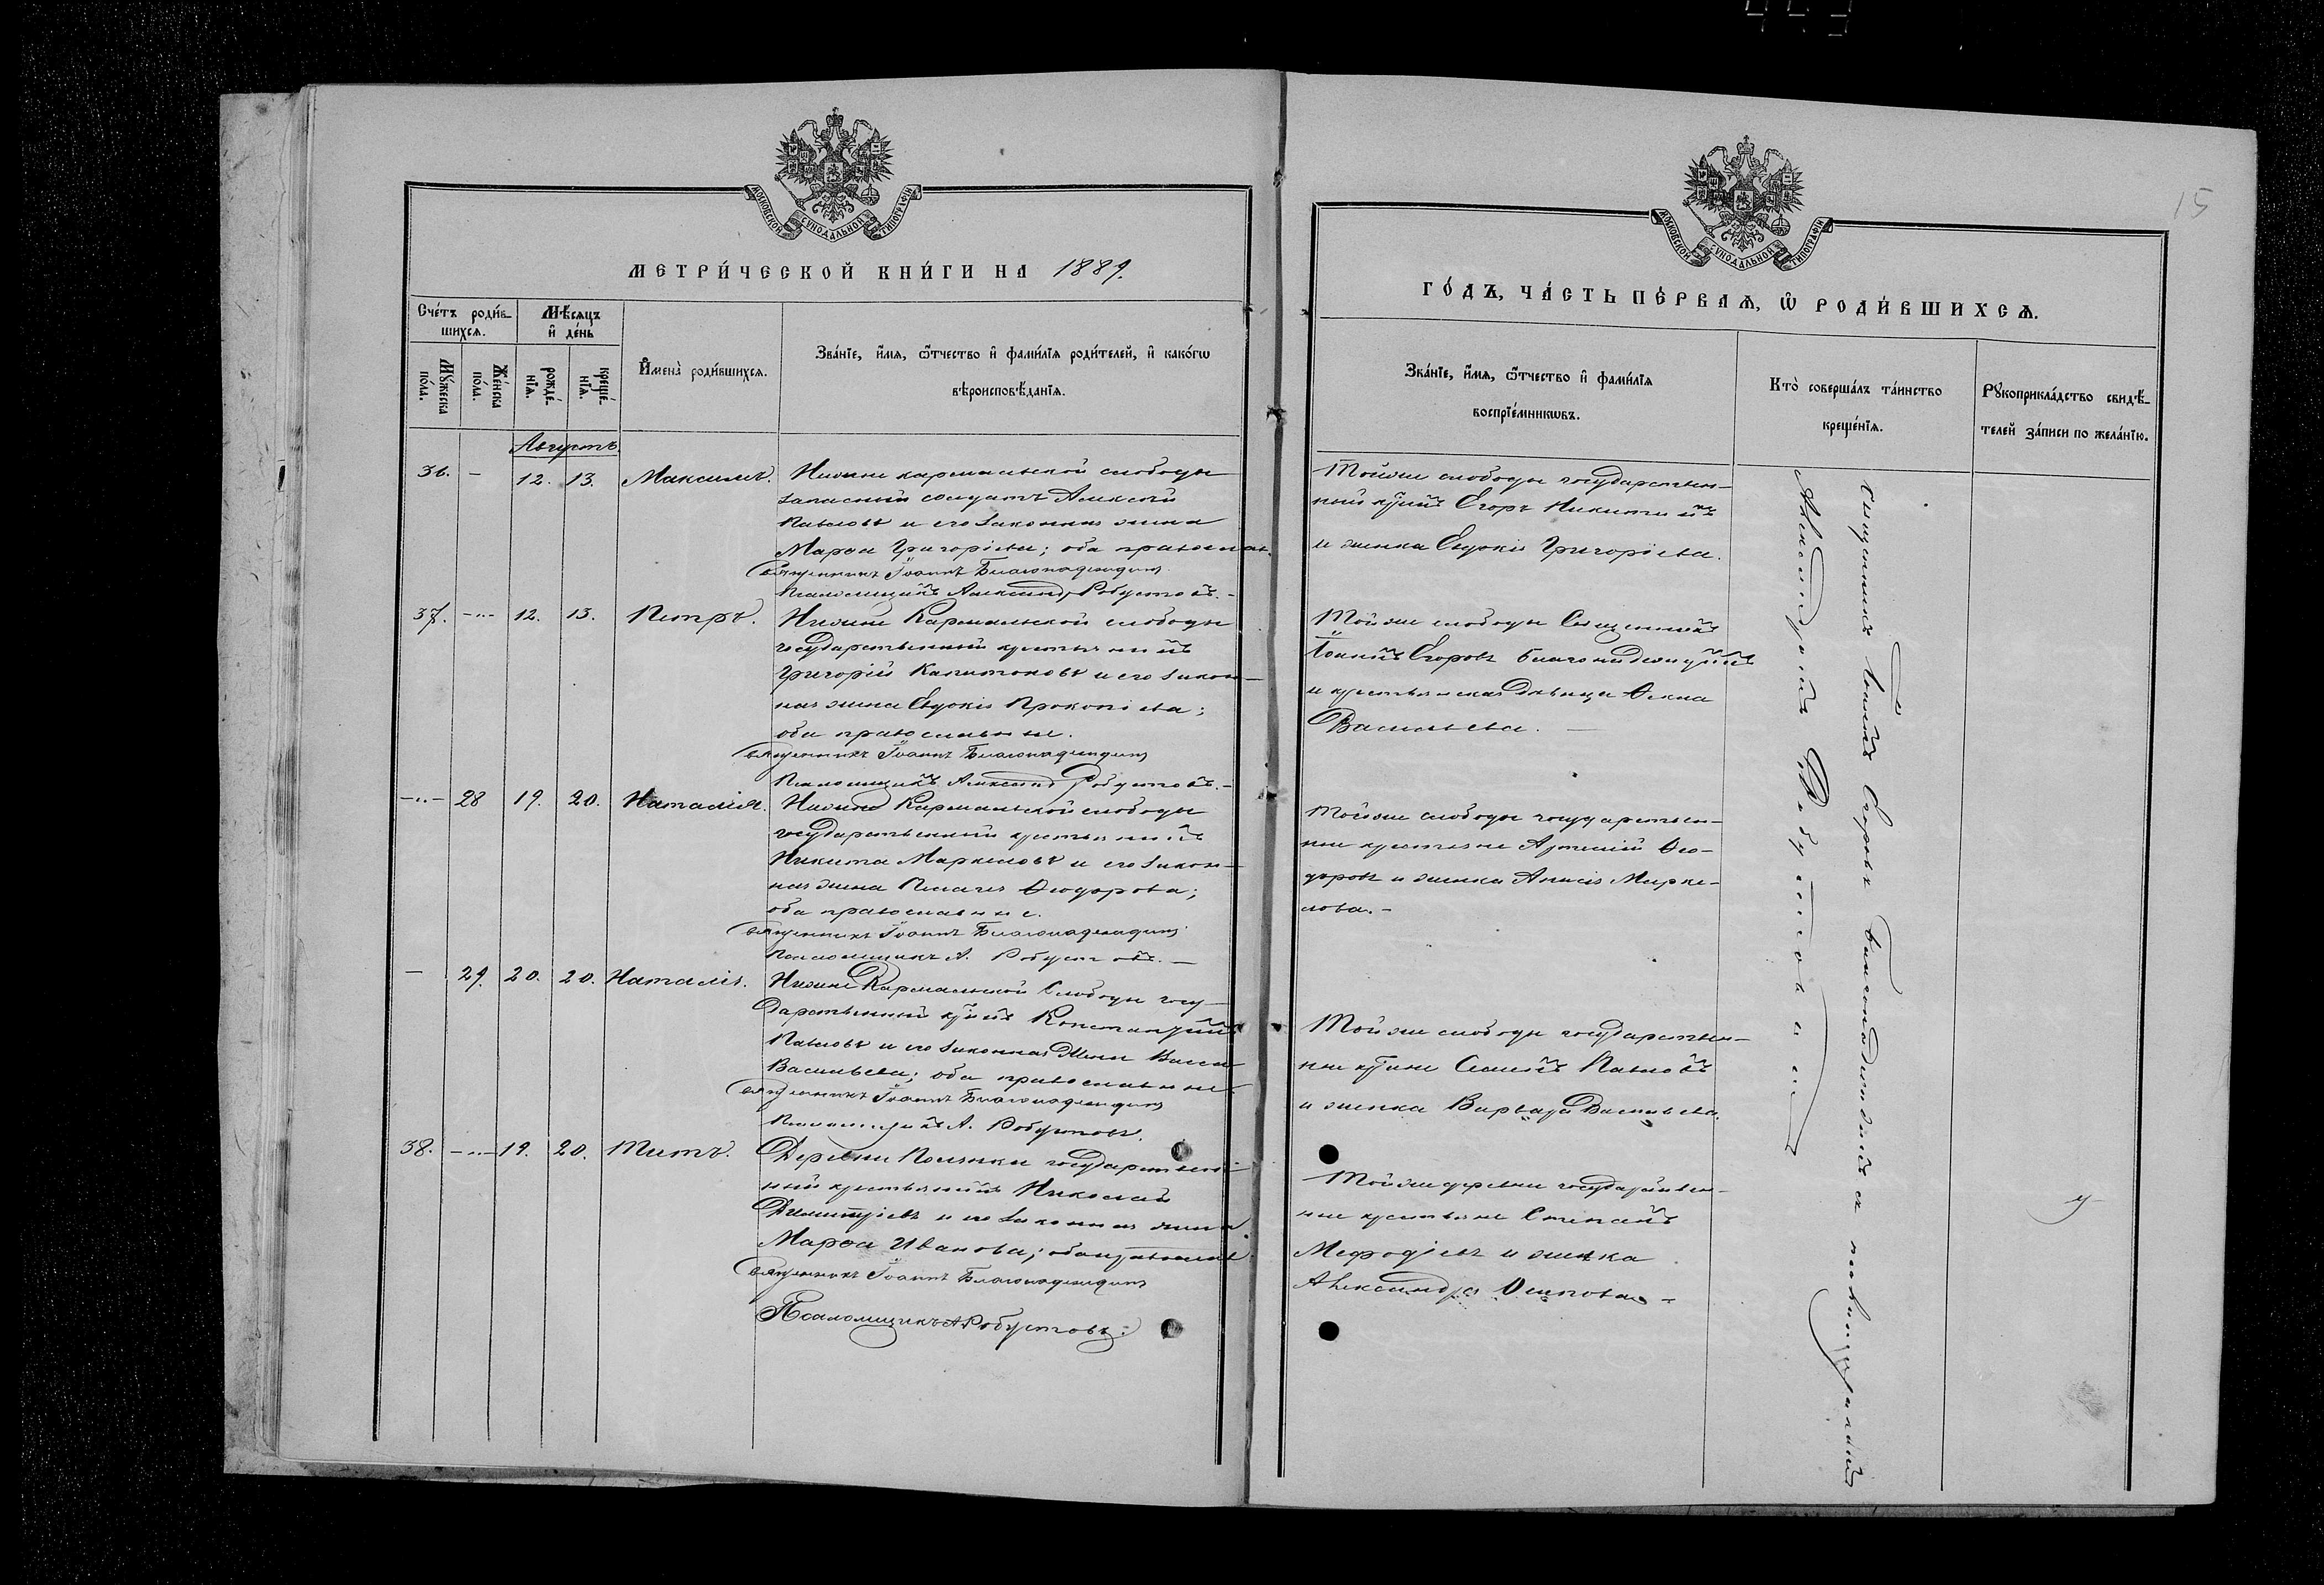 МОСКОВСКОЙ СѴНОДАЛЬНОЙ ТИПОГРАФІИ
МЕТРИ́ЧЕСКОЙ КНИ́ГИ НА 1889.
Сче́тъ роди́в-
шихсѧ.
Мѣ́сѧцъ
и҆ де́нь
Мꙋ́жеска
по́ла.
Же́нска
по́ла.
рожде́-
нїѧ.
креще́-
нїѧ.
И҆мена̀ роди́вшихсѧ.
Зва́нїе, и҆́мѧ, ѻ҆́тчество и҆ фами́лїѧ роди́телей, и҆ како́гѡ
вѣроисповѣ́данїѧ.
Августъ.
36. - 12. 13. Максимъ. Нижне кармальской слободы
запасный солдатъ Алексѣй
Павловъ и его законная жена
Марѳа Григоріева; оба православ.
Священникъ Іоаннъ Благонадеждинъ
Псаломщикъ Александръ Робустовъ.-
37. -..- 12. 13. Петръ. Нижне Кармальской слободы
государственный крестьянинъ
Григорій Капитоновъ и его закон-
ная жена Евдокія Прокопіева;
оба православные.
Священникъ Іоаннъ Благонадеждинъ
Псаломщикъ Александ Робустовъ.-
-..- 28 19. 20. Наталія. Нижне Кармальской слободы
государственный крестьянинъ
Никита Маркеловъ и его закон-
ная жена Пелагея Ѳеодорова;
оба православные.
Священникъ Іоаннъ Благонадеждинъ
Псаломщикъ А. Робустовъ. -
- 29. 20. 20. Наталія. Нижне Кармальской Слободы госу-
дарственный кр̃инъ Константинъ
Павловъ и его законная Жена Васса
Васильева; оба православные.
Священникъ Іоаннъ Благонадеждинъ
Псаломщикъ А. Робустовъ.
38. -..- 19. 20. Титъ. Деревни Полянки государствен-
ный крестьянинъ Николай
Димитріевъ и его законная жена
Марѳа Иванова; оба православ.
Священникъ Іоаннъ Благонадеждинъ
Псаломщикъ А Робустовъ.
15
МОСКОВСКОЙ СѴНОДАЛЬНОЙ ТИПОГРАФІИ
ГО́ДЪ, ЧА́СТЬ ПЕ́РВАѦ, Ѡ҆ РОДИ́ВШИХСѦ.
Зва́нїе, и҆́мѧ, ѻ҆́тчество и҆ фами́лїѧ
воспрїе́мникѡвъ.
Кто̀ соверша́лъ та́инство
креще́нїѧ.
Рꙋкоприкла́дство свидѣ́-
телей за́писи по жела́нїю.
Тойже слободы государствен-
ный кр̃инъ Егоръ Никитинъ
и женка Евдокія Григоріева.
Тойже слободы Священникъ
Іоаннъ Егоровъ Благонадеждинъ
и крестьянская дѣвица Ѳекла
Васильева. -
Тойже слободы государствен-
ные крестьяне Артемій Ѳео-
доровъ и женка Анисія Марке-
лова.-
Тойже слободы государствен-
ные кр̃яне Семенъ Павловъ
и женка Варвара Васильева.
Тойже деревни государствен-
ные крестьяне Степанъ
Мефодіевъ и женка
Александра Осипова -
Священникъ Іоаннъ Егоровъ Благонадеждинъ съ псаломщикомъ
Александромъ Робустовымъ